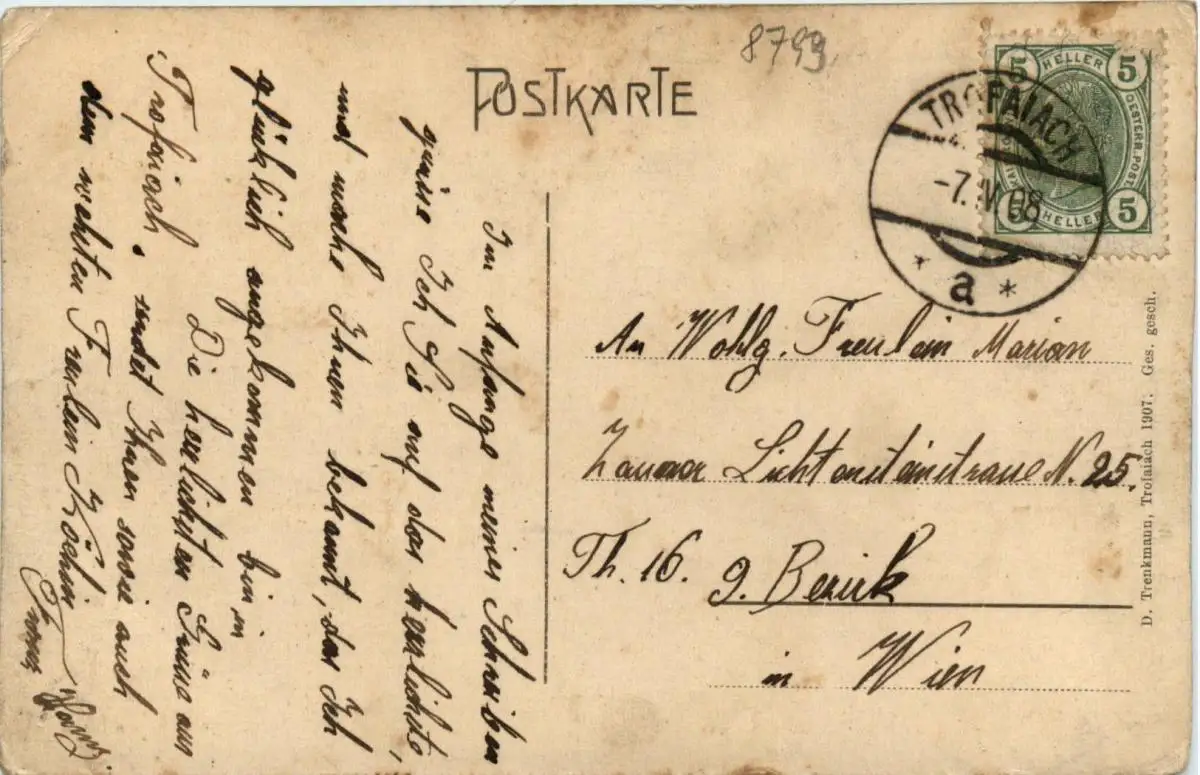 8799
POSTKARTE
5 HELLER 5
OESTERR. POST
5 HELLER 5
TROFAIACH
-7. IV. 08
* a *
Im Anfange meines Schreiben
grüse Ich Sie auf das herlichste,
und mache Ihnen bekannt, das Ich
glücklich angekommen bin in
Die herlichsten Grüse aus
Trofaiach. sendet Ihnen sowie auch
dem Freulein Köchin
Franz
An Wohlg. Freulein Marian
Lichtensteinstrasse N. 25.
Th. 16. 9. Bezirk
in Wien
D. Trenkmann, Trofaiach 1907. Ges. gesch.